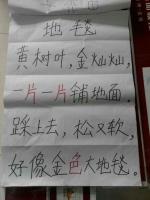 地毯
黄树叶，金灿灿，
一片一片铺地面，
踩上去，松又软，
好像金色大地毯。